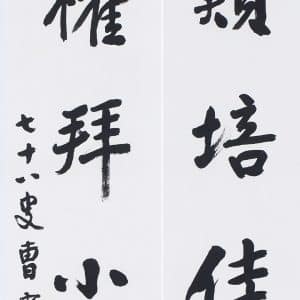 培佳
拜小
七十八叟曹